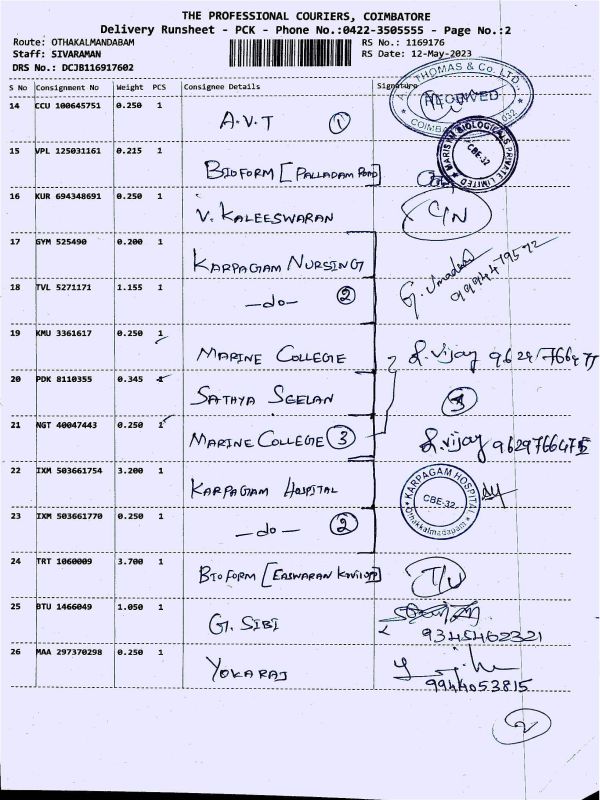 THE PROFESSIONAL COURIERS, COIMBATORE
Delivery Runsheet - PCK - Phone No.:0422-3505555 - Page No.:2
Route: OTHAKALMANDABAM RS No.: 1169176
Staff: SIVARAMAN RS Date: 12-May-2023
DRS No.: DCJB116917602
S No Consignment No Weight PCS Consignee Details Signature
14 CCU 100645751 0.250 1 A.V.T 1
THOMAS & Co. LTD. RECEIVED
15 VPL 125031161 0.215 1 BIOFORM [PALLADAM ROAD]
BIOLOGICALS PRIVATE LIMITED CBE-32
16 KUR 694348691 0.250 1 V. KALEESWARAN C/N
17 GYM 525490 0.200 1 KARPAGAM NURSING
18 TVL 5271171 1.155 1 —do— 2
19 KMU 3361617 0.250 1 MARINE COLLEGE S. Vijay
20 PDK 8110355 0.345 1 SATHYA SEELAN
21 NGT 40047443 0.250 1 MARINE COLLEGE 3 S. Vijay
22 IXM 503661754 3.200 1 KARPAGAM HOSPITAL
KARPAGAM HOSPITAL CBE-32. Othakkalmadapam
23 IXM 503661770 0.250 1 —do— 2
24 TRT 1060009 3.700 1 BIOFORM [EASWARAN
25 BTU 1466049 1.050 1 G. SIBI
9345462321
26 MAA 297370298 0.250 1 YOKARAJ
9944053815
2